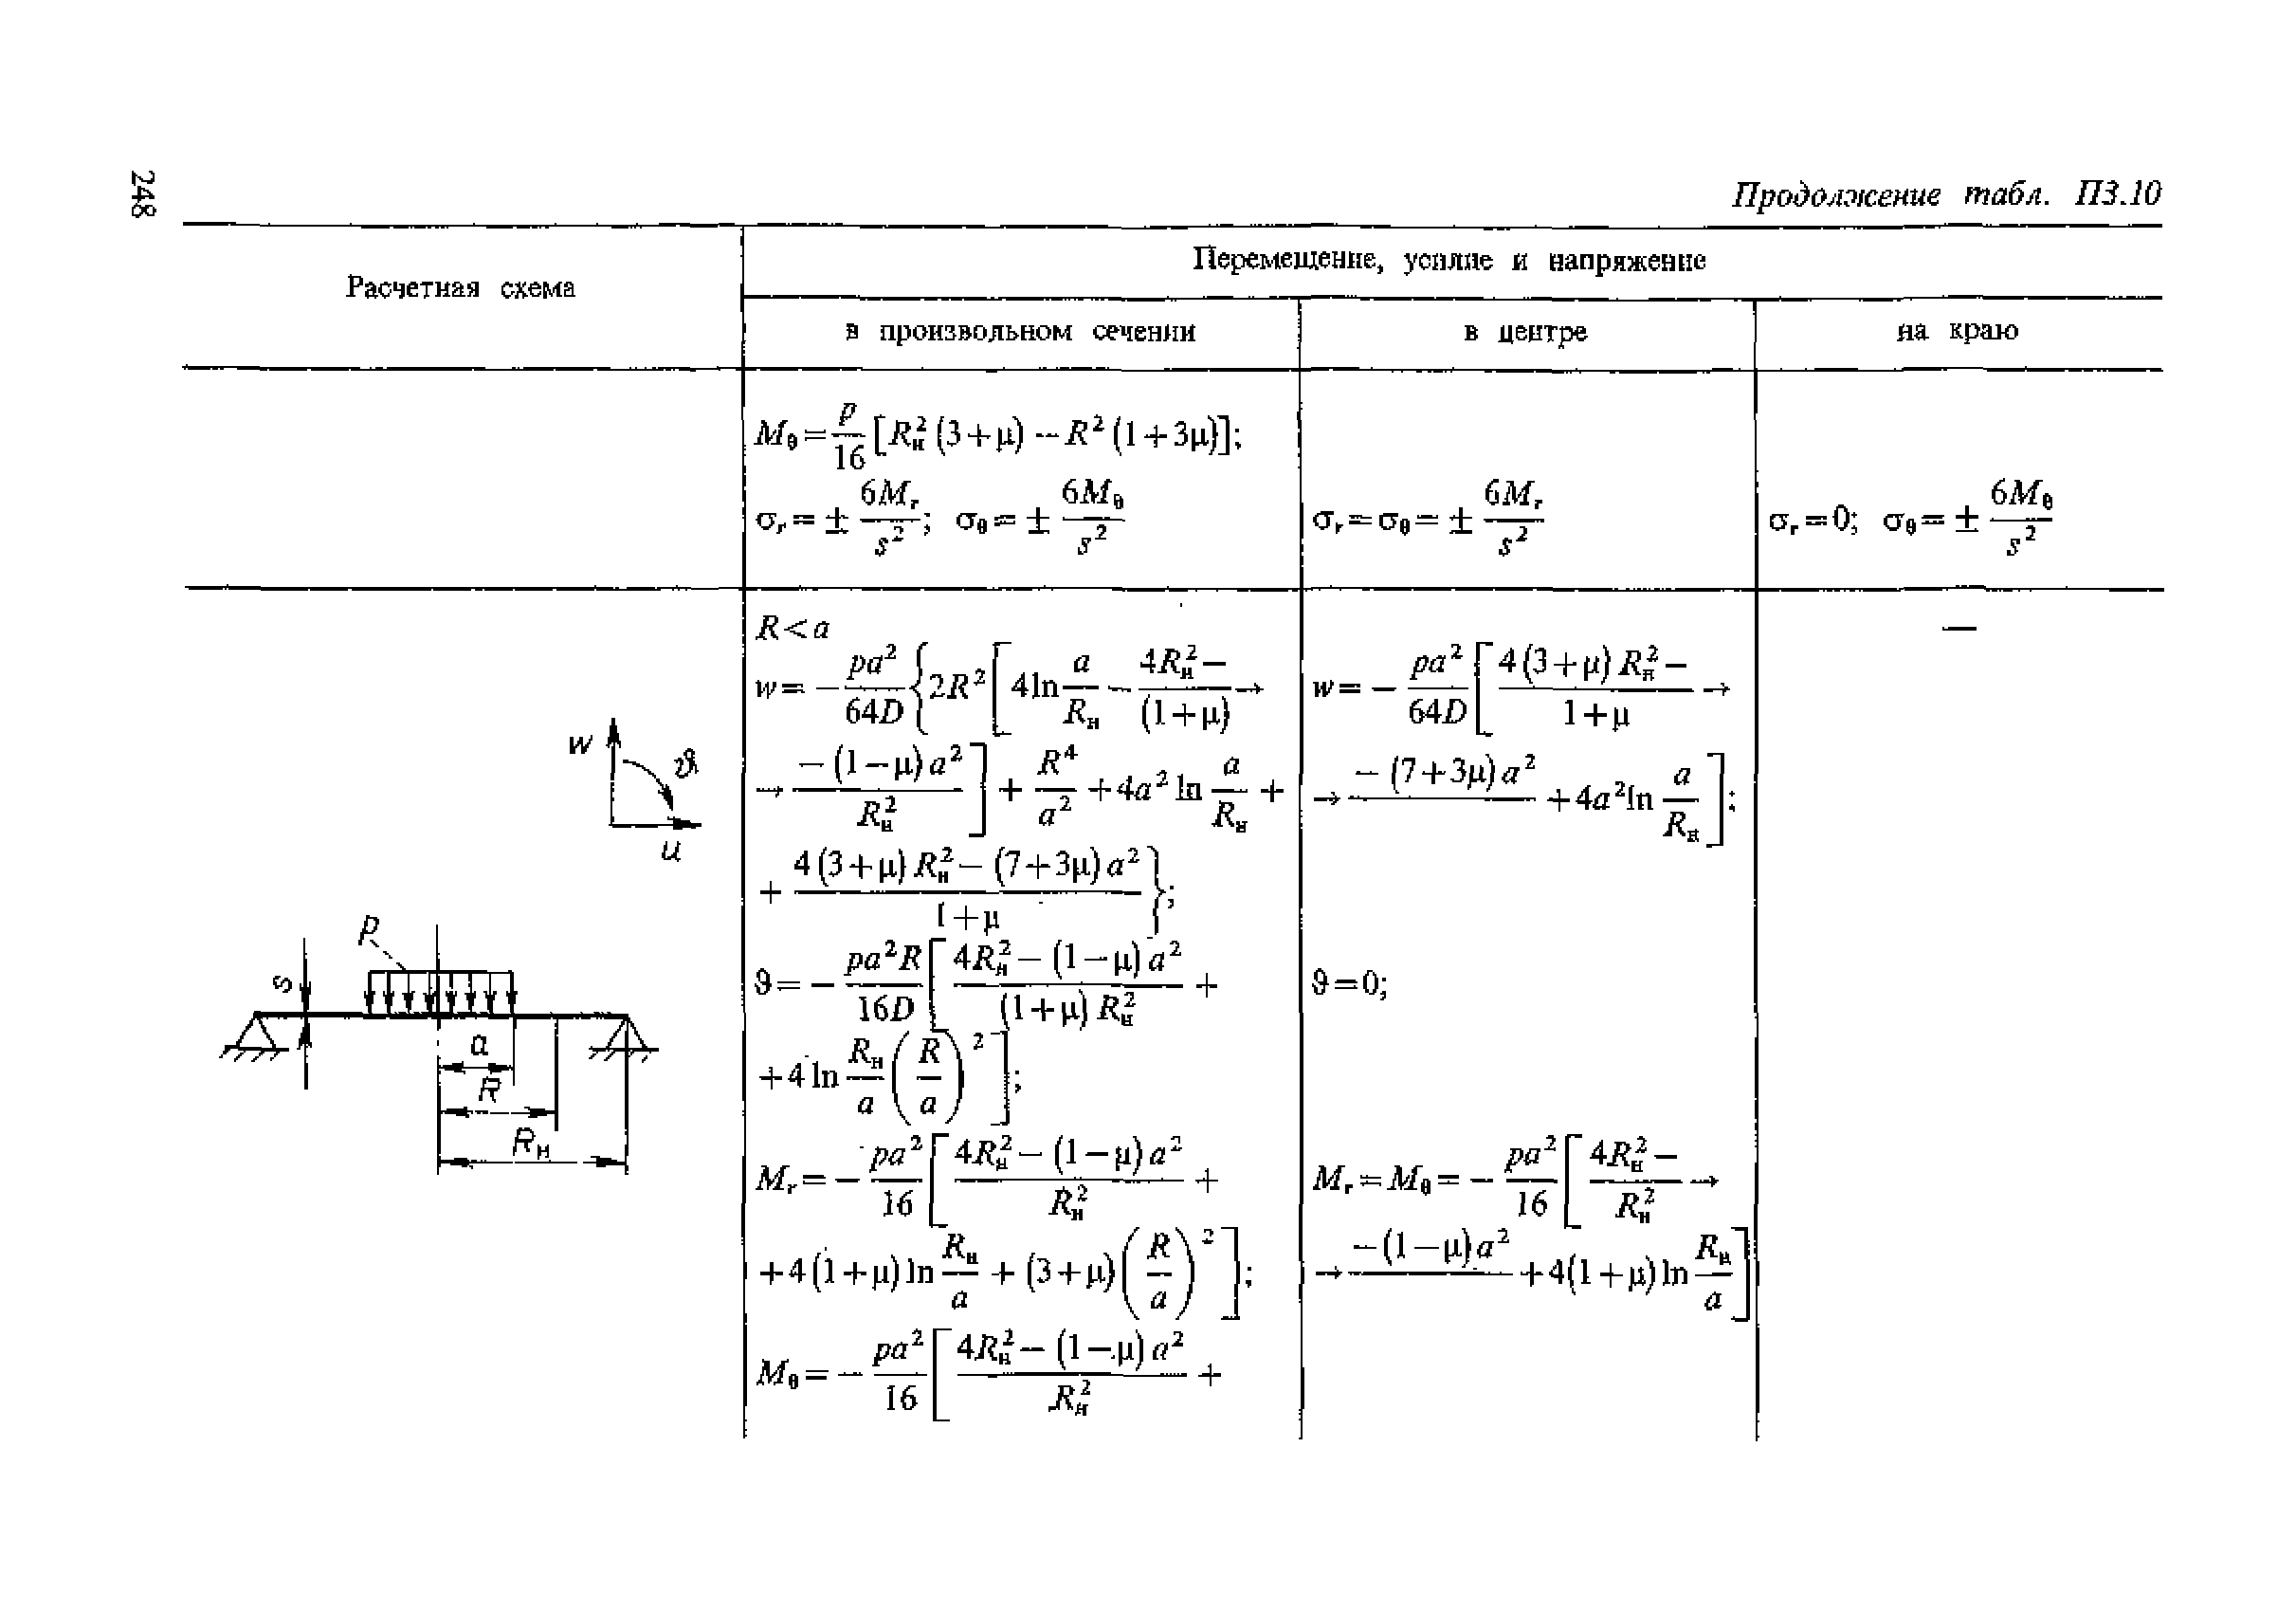 248
Продолжение табл. П3.10
Расчетная схема
Перемещение, усилие и напряжение
в произвольном сечении
в центре
на краю
M_θ = p/16 [R_н² (3+μ) − R² (1+3μ)];
σ_r = ± 6M_r/s²; σ_θ = ± 6M_θ/s²
σ_r = σ_θ = ± 6M_r/s²
σ_r = 0; σ_θ = ± 6M_θ/s²
R < a
w = − pa²/64D {2R² [4 ln a/R_н − 4R_н² − / (1+μ) →
→ − (1−μ) a² / R_н² ] + R⁴/a² + 4a² ln a/R_н +
+ 4 (3+μ) R_н² − (7+3μ) a² / 1+μ };
ϑ = − pa²R/16D [ 4R_н² − (1−μ) a² / (1+μ) R_н² +
+ 4 ln R_н/a (R/a)² ];
M_r = − pa²/16 [ 4R_н² − (1−μ) a² / R_н² +
+ 4 (1+μ) ln R_н/a + (3+μ) (R/a)² ];
M_θ = − pa²/16 [ 4R_н² − (1−μ) a² / R_н² +
w = − pa²/64D [ 4 (3+μ) R_н² − / 1+μ →
→ − (7+3μ) a² + 4a² ln a/R_н ];
ϑ = 0;
M_r = M_θ = − pa²/16 [ 4R_н² − / R_н² →
→ − (1−μ) a² + 4(1+μ) ln R_н/a ]
—
w
ϑ
u
p
s
a
R
R_н